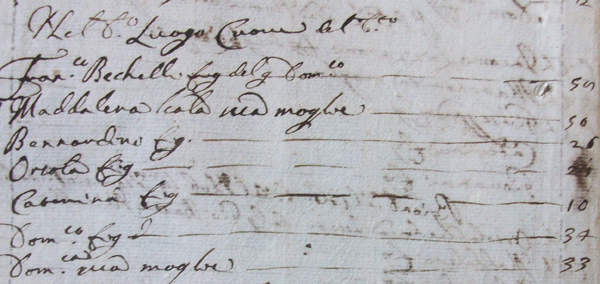 Nel d.o Luogo Cam del d.co
Fran.co Bechelli fig del q Dom.co 59
Maddalena sua mogle 50
Bernardino fig. 26
Orsola fig. 24
Caterina fig 10
Dom.co fig 37
Dom.ca sua mogle 33